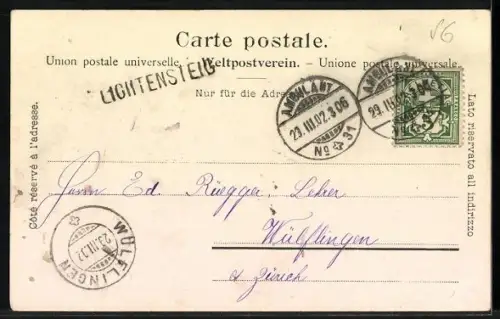 56
Carte postale.
Union postale universelle. Weltpostverein. - Unione postale universale.
LICHTENSTEIG
Nur für die Adresse
AMBULANT
29.III.02.3 06
No 31
AMBULANT
29.III.02.3 06
Côté réservé à l'adresse.
Lato riservato all indirizzo
Herrn Ed. Rüegger Lehrer
Wülflingen
Zürich
WÜLFLINGEN